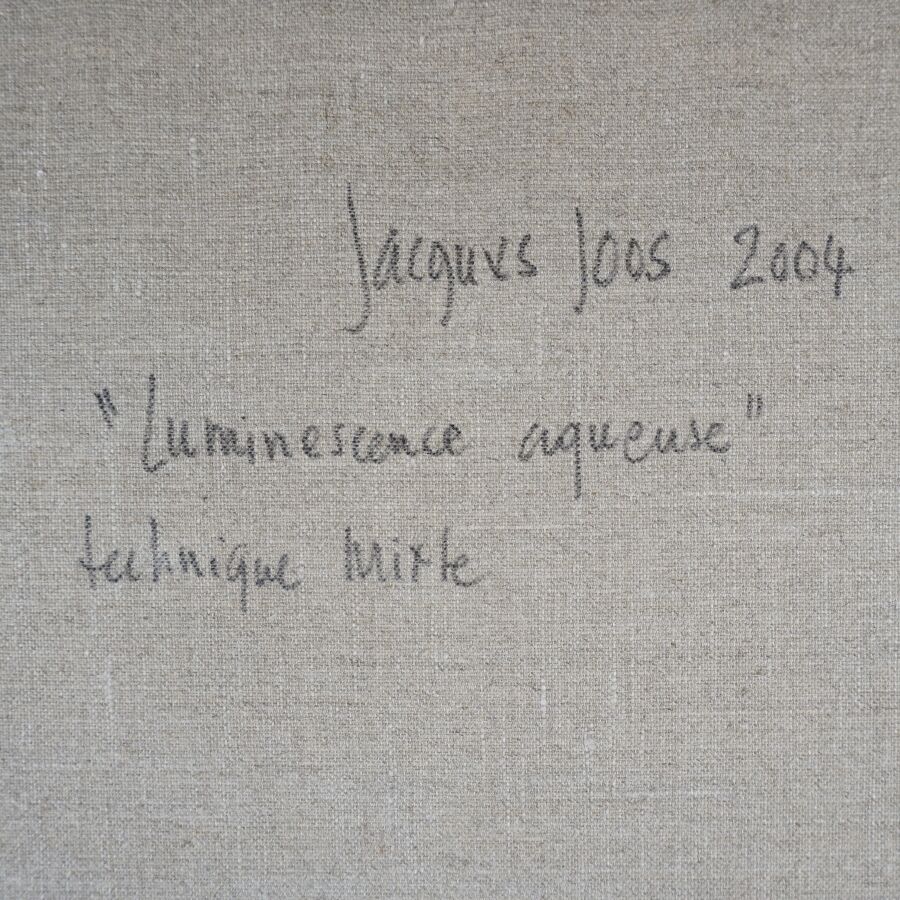 Jacques Joos 2004
"Luminescence aqueuse"
technique mixte